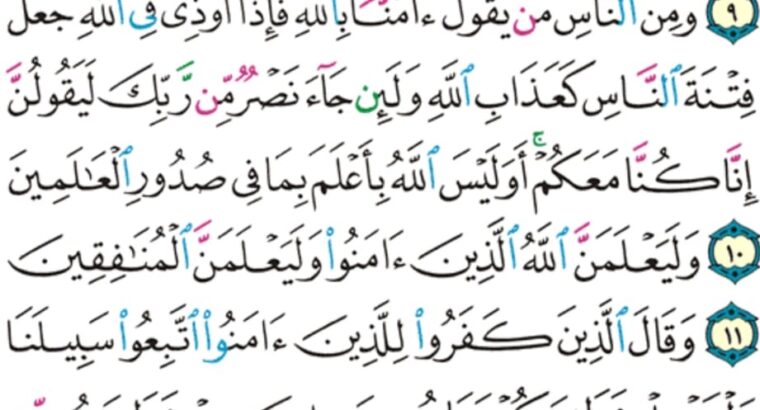 ٩ وَمِنَ ٱلنَّاسِ مَن يَقُولُ ءَامَنَّا بِٱللَّهِ فَإِذَآ أُوذِىَ فِى ٱللَّهِ جَعَلَ
فِتْنَةَ ٱلنَّاسِ كَعَذَابِ ٱللَّهِ وَلَئِن جَآءَ نَصْرٌ مِّن رَّبِّكَ لَيَقُولُنَّ
إِنَّا كُنَّا مَعَكُمْ ۚ أَوَلَيْسَ ٱللَّهُ بِأَعْلَمَ بِمَا فِى صُدُورِ ٱلْعَٰلَمِينَ
١٠ وَلَيَعْلَمَنَّ ٱللَّهُ ٱلَّذِينَ ءَامَنُوا۟ وَلَيَعْلَمَنَّ ٱلْمُنَٰفِقِينَ
١١ وَقَالَ ٱلَّذِينَ كَفَرُوا۟ لِلَّذِينَ ءَامَنُوا۟ ٱتَّبِعُوا۟ سَبِيلَنَا